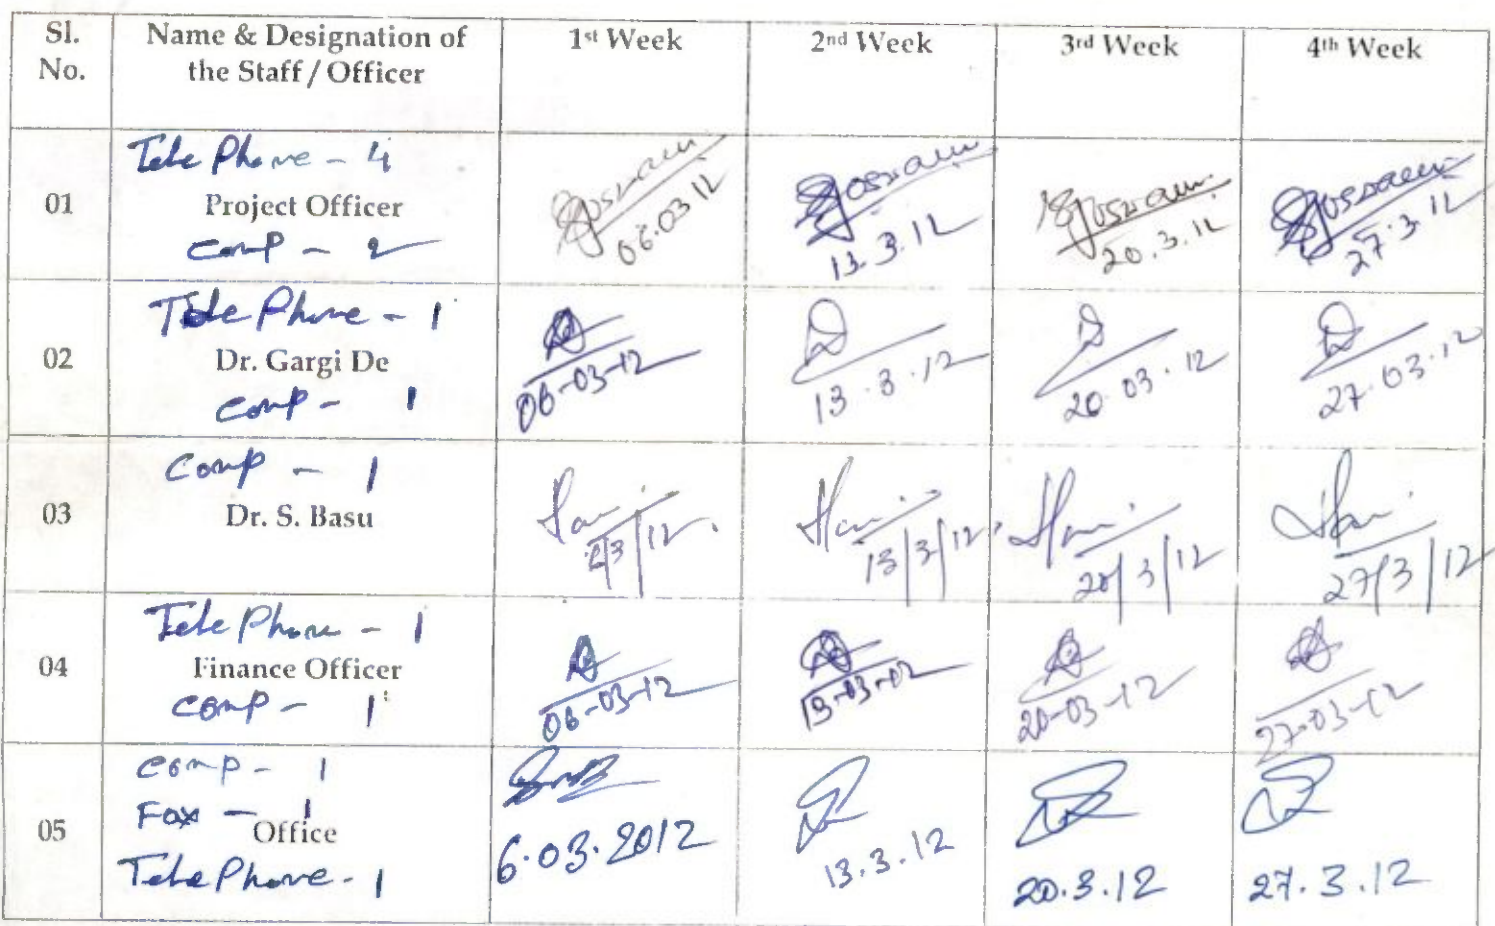 Sl. No.
Name & Designation of the Staff / Officer
1st Week
2nd Week
3rd Week
4th Week
01
Tele Phone - 4
Project Officer
Comp - 2
Goswami
06.03 12
Goswami
13.3.12
Goswami
20.3.12
Goswami
27.3.12
02
Tele Phone - 1
Dr. Gargi De
Comp - 1
06-03-12
13.3.12
20.03.12
27.03.12
03
Comp - 1
Dr. S. Basu
6/3/12.
13/3/12.
20/3/12
27/3/12
04
Tele Phone - 1
Finance Officer
Comp - 1
06-03-12
13-03-12
20-03-12
27-03-12
05
Comp - 1
Fax - 1
Office
Tele Phone - 1
6.03.2012
13.3.12
20.3.12
27.3.12